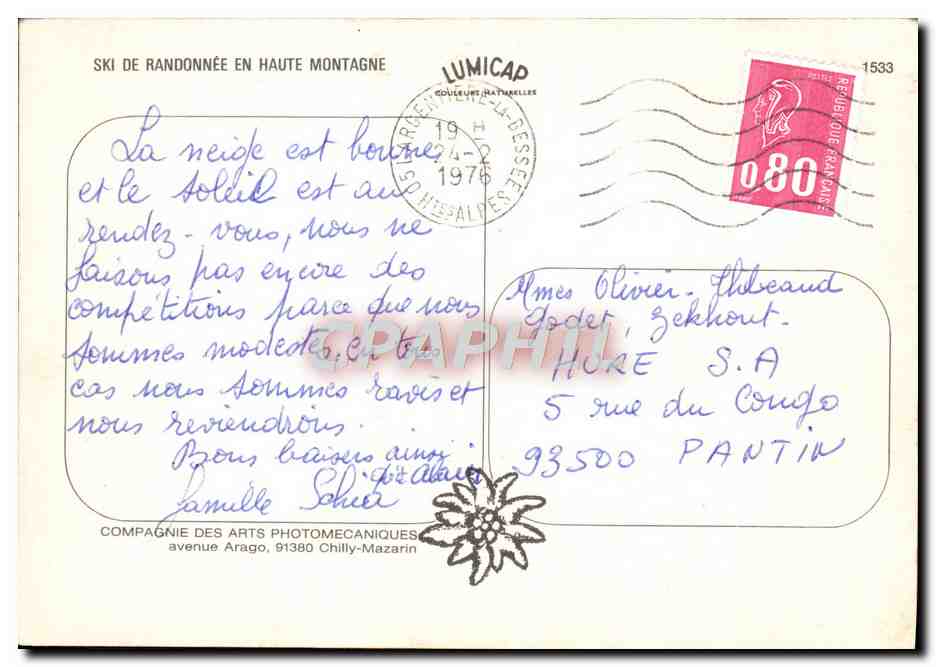 SKI DE RANDONNÉE EN HAUTE MONTAGNE
LUMICAP
COULEURS NATURELLES
1533
05 L'ARGENTIERE-LA-BESSEE
19 H
24-2
1976
Htes ALPES
POSTES
REPUBLIQUE FRANÇAISE
0,80
La neige est bonne,
et le soleil est au
rendez-vous, nous ne
faisons pas encore des
compétitions parce que nous
sommes modestes, en tous
cas nous sommes ravis et
nous reviendrons.
Bons baisers ainsi
famille
Mmes Olivier - Thibeaud
Godet,
HURE S.A
5 rue du Congo
93500 PANTIN
CPAPHIL
COMPAGNIE DES ARTS PHOTOMECANIQUES
avenue Arago, 91380 Chilly-Mazarin